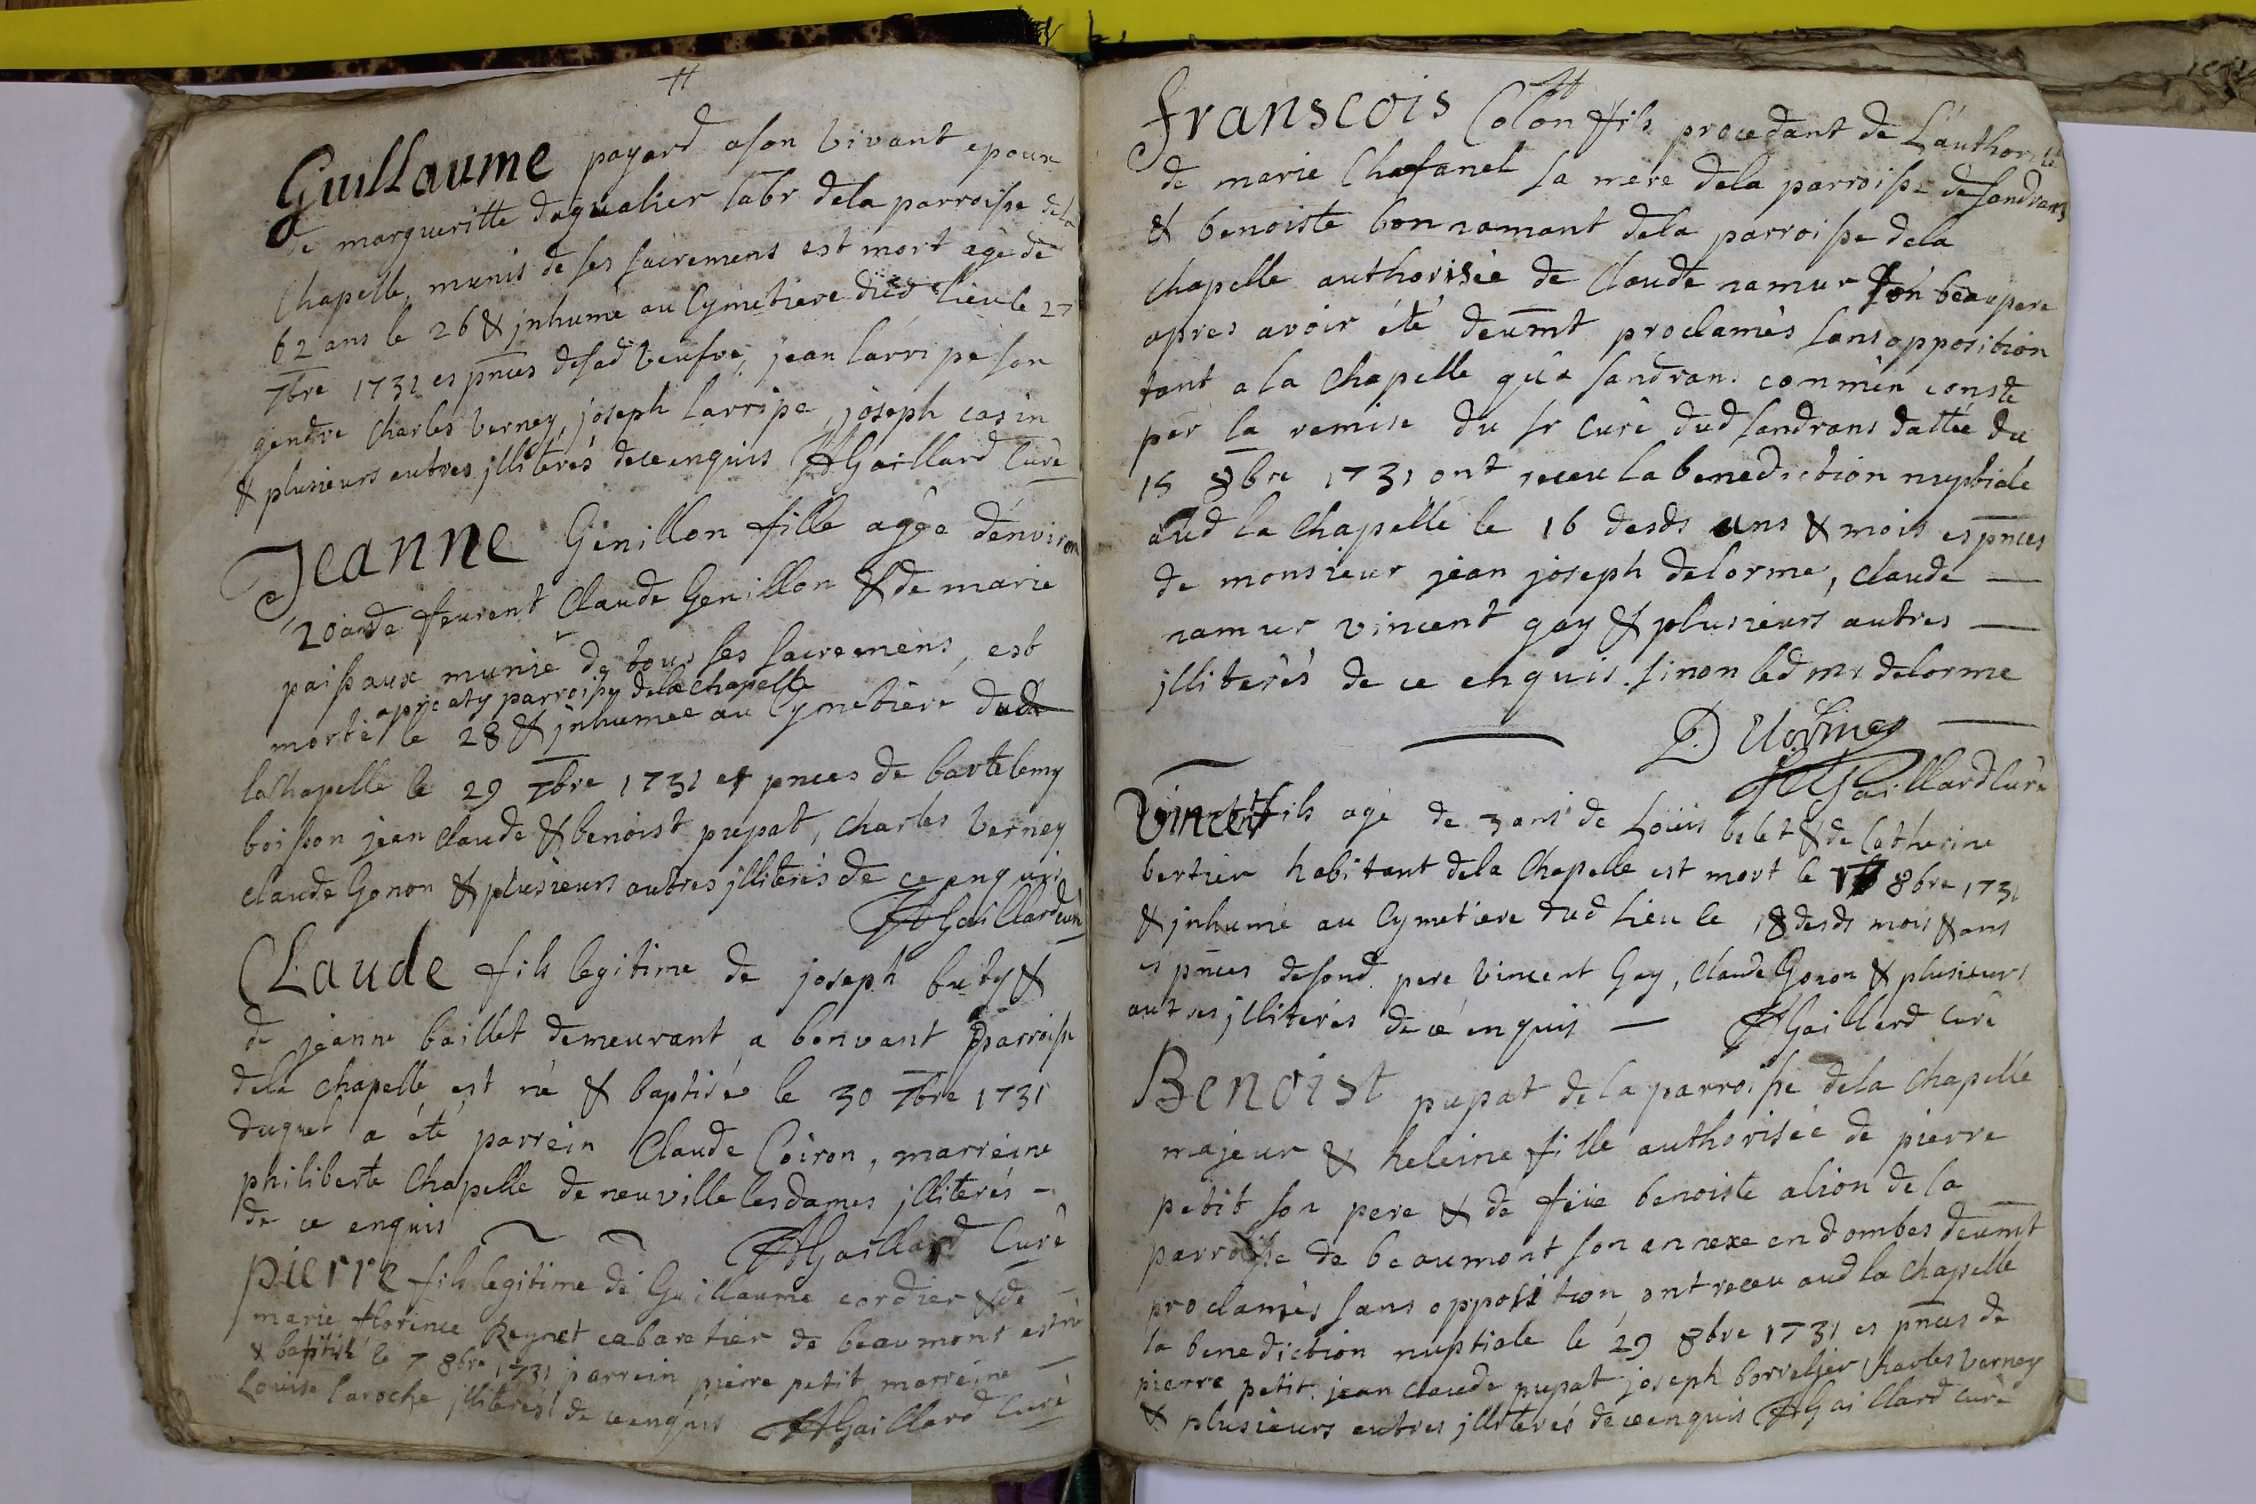 Guillaume payard a son vivant epoux
de margueritte dagualier labr dela parroisse dela
Chapelle, munis de ses sacremens est mort agé de
62 ans le 26 & jnhumé au Cymetiere dud lieu le 27
7bre 1731 es pnces desad veufve, jean larripe son
gendre Charles Verney, joseph larripe, joseph casin
& plusieurs autres jllitérés de ce enquis Gaillard Curé
Jeanne Genillon fille agée d'environ
20 ans de feurent Claude Genillon & de marie
paissaux munie de tous ses sacremens, est
parroisse dela Chapelle
morte le 28 & jnhumee au Cymetiere dud
la Chapelle le 29 7bre 1731 es pnces de bartelemy
boisson jean Claude & benoist pupat, Charles Verney
Claude Gonon & plusieurs autres jllitérés de ce enquis
Gaillard curé
CLaude fils legitime de joseph buty &
de jeanne baillet demeurant a bonvant parroisse
dela Chapelle est né & baptisé le 30 7bre 1731
duquel a été parrein Claude Coiron, marreine
philiberte Chapelle de neuville les dames jlliterés -
de ce enquis Gaillard Curé
pierre fils legitime de Guillaume cordier & de
marie florence Reynet cabaretier de beaumont est né
& baptisé le 7 8bre 1731 parrein pierre petit marreine
Louise Laroche jllitérés de ce enquis Gaillard Curé
franscois Colon fils procedant de L'authorité
de marie Chafanel sa mere dela parroisse de sandrans
& benoiste bonnamant dela parroisse dela
Chapelle authorisée de Claude namur son beaupere
apres avoir été deumt proclamés sans opposition
tant a la Chapelle qu'a sandrans comm'en conste
par la remise du sr Curé dud sandrans dattée du
15 8bre 1731 ont receu la benediction nuptiale
aud la Chapelle le 16 desds ans & mois es pnces
de monsieur jean joseph delorme, Claude —
namur vincent gay & plusieurs autres —
jlliterés de ce enquis. sinon led mr delorme
Delorme —
Gaillard Curé
Vincent fils agé de 3 ans de Loüis belet & de Catherine
bertier habitant dela Chapelle est mort le 17 8bre 1731
& jnhumé au Cymetiere dud Lieu le 18 desds mois & ans
es pnces desond pere Vincent Gay, Claude Gonon & plusieurs
autres jllitérés de ce enquis — Gaillard Curé
Benoist pupat de la parroisse dela Chapelle
majeur & heleine fille authorisée de pierre
petit son pere & de feüe benoiste alion de la
parroisse de beaumont son annexe en dombes deumt
proclamés sans opposition ont receu aud la Chapelle
la benediction nuptiale le 29 8bre 1731 es pnces de
pierre petit, jean claude pupat joseph borrelier Charles Verney
& plusieurs autres jllitérés de ce enquis Gaillard Curé